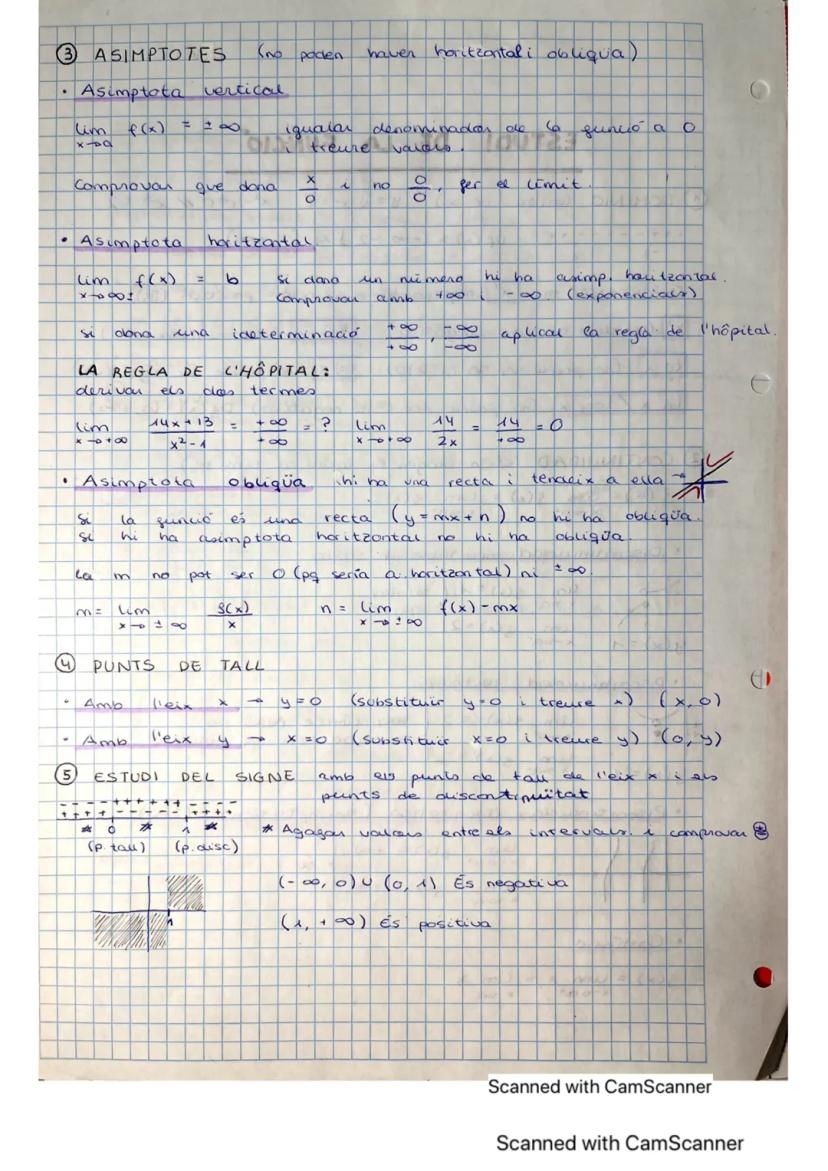 ③ ASIMPTOTES (no poden haver horitzontal i obliqua)
• Asimptota vertical
lim x→a f(x) = ± ∞ igualar denominador de la funció a 0
i treure valors.
Comprovar que dona x/0 i no 0/0, fer el límit.
• Asimptota horitzontal
lim x→∞± f(x) = b si dona un número hi ha asimp. horitzontal.
comprovar amb +∞ i -∞. (exponencials)
si dona una ideterminació +∞/+∞, -∞/-∞ aplicar la regla de l'hôpital.
LA REGLA DE L'HÔPITAL:
derivar els dos termes
lim x→+∞ 14x+13/x²-1 = +∞/+∞ = ? lim x→+∞ 14/2x = 14/+∞ = 0
• Asimptota obliqüa hi ha una recta i tendeix a ella →
Si la funció és una recta (y=mx+n) no hi ha obliqüa.
Si hi ha asimptota horitzontal no hi ha obliqüa.
La m no pot ser 0 (pq seria a. horitzontal) ni ± ∞.
m = lim x→ ± ∞ f(x)/x n = lim x→ ± ∞ f(x)-mx
④ PUNTS DE TALL
• Amb l'eix x → y=0 (substituir y=0 i treure x) (x,0)
• Amb l'eix y → x=0 (substituir x=0 i treure y) (0,y)
⑤ ESTUDI DEL SIGNE amb els punts de tall de l'eix x i els
punts de discontinuïtat
* 0 * 1 * * Agafar valors entre els intervals i comprovar
(p. tall) (p. disc)
(-∞, 0) ∪ (0, 1) És negativa
1
(1, +∞) És positiva
Scanned with CamScanner
Scanned with CamScanner